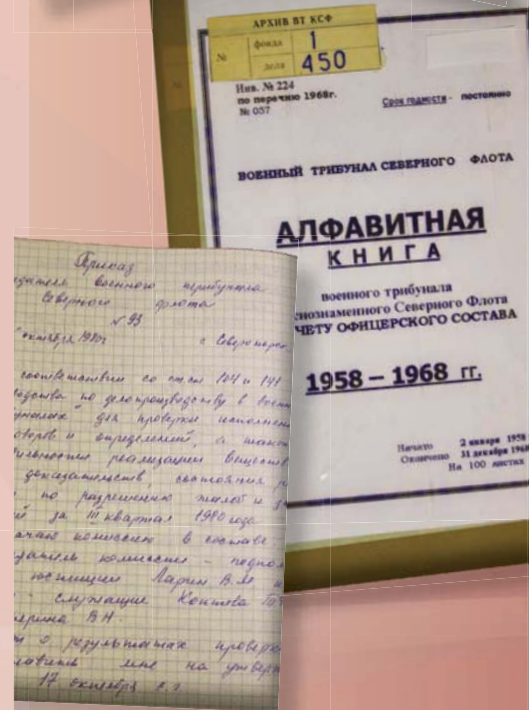 АРХИВ ВТ КСФ
№ фонда 1
дела 450
Инв. № 224
по перечню 1968г.
№ 057
Срок годности - постоянно
ВОЕННЫЙ ТРИБУНАЛ СЕВЕРНОГО ФЛОТА
АЛФАВИТНАЯ
КНИГА
военного трибунала
снознаменного Северного Флота
ЧЕТУ ОФИЦЕРСКОГО СОСТАВА
1958 – 1968 гг.
Начато 2 января 1958
Окончено 31 декабря 1968
На 100 листах
Приказ
военного трибунала
Северного флота
№ 93
октября 1980г г. Североморск
соответствии со ст.ст. 104 и 191
по делопроизводству в
для проверки исполнения
и определений, а
реализации веществ
доказательств, состояния
по разрешению жалоб и
за III квартал 1980 года
комиссию в составе
комиссии -
юстиции Ларин В.М.
- служащие Коптева
В.Н.
о результатах проверки
мне на утверж
17 октября с.г.